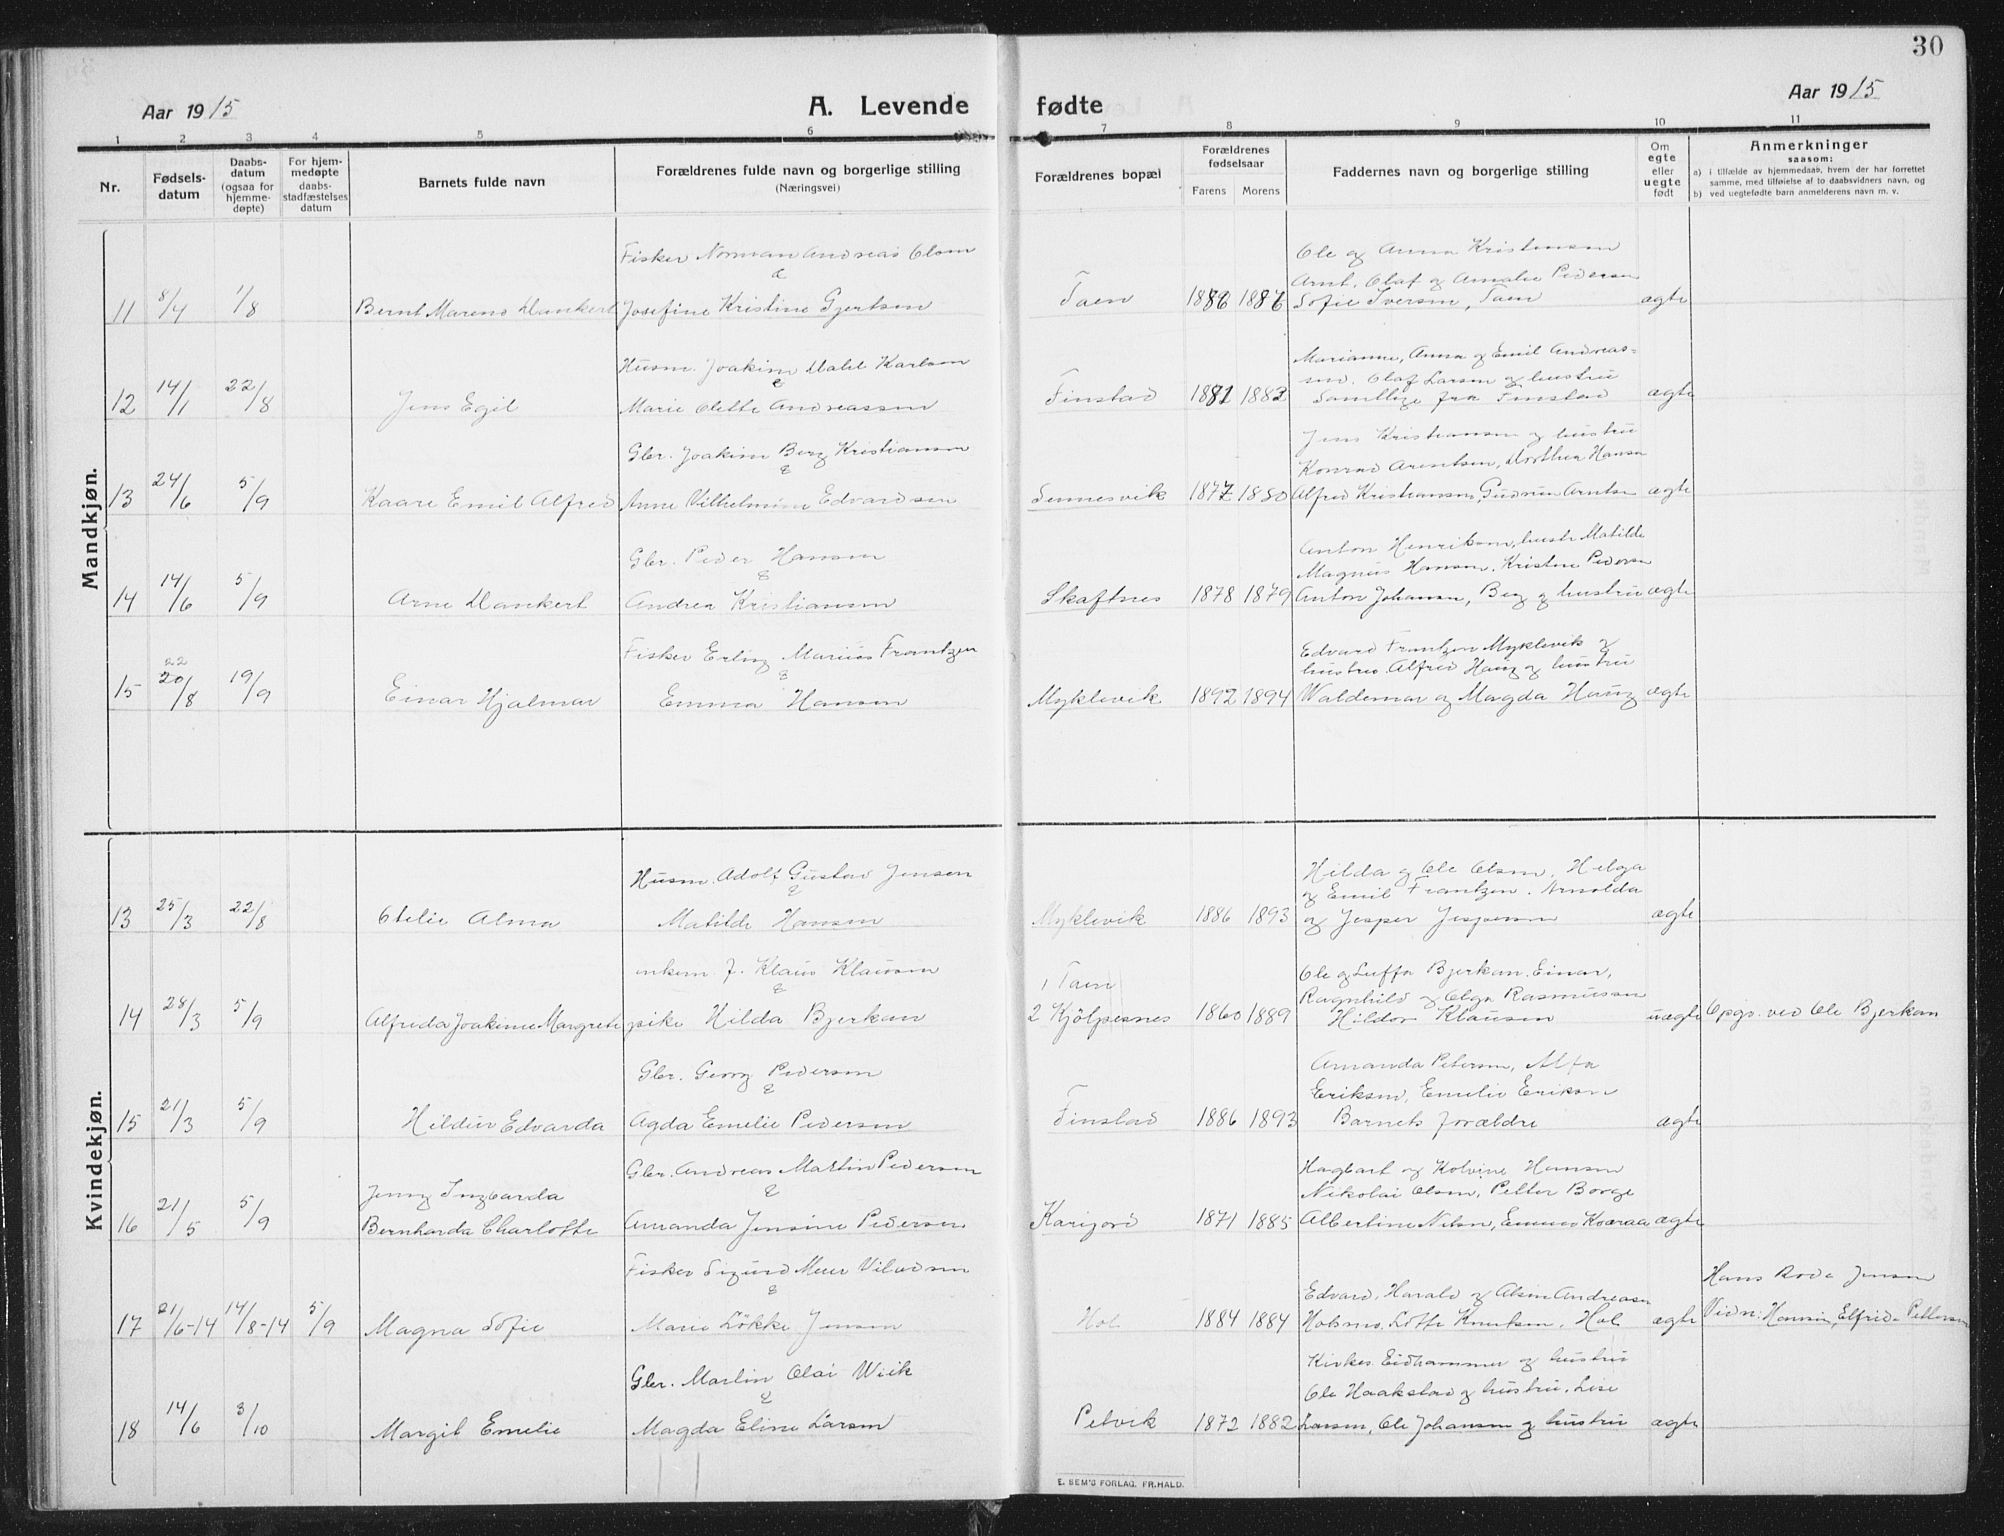 30
Aar 1915
A. Levende fødte
Aar 1915
1 2 3 4 5 6 7 8 9 10 11
Nr.
Fødsels-
datum
Daabs-
datum
(ogsaa for
hjemme-
døpte)
For hjem-
medøpte
daabs-
stadfæstelses
datum
Barnets fulde navn
Forældrenes fulde navn og borgerlige stilling
(Næringsvei)
Forældrenes bopæl
Forældrenes
fødselsaar
Farens Morens
Faddernes navn og borgerlige stilling
Om
egte
eller
uegte
født
Anmerkninger
saasom:
a) i tilfælde av hjemmedaab, hvem der har forrettet
samme, med tilføielse af to daabsvidners navn, og
b) ved uegtefødte barn anmelderens navn m. v.
Mandkjøn.
Fisker Norman Andreas Olsen
&
11 8/4 1/8 Bernt Mareno Dankert Josefine Kristine Gjertsen
Taen 1886 1886
Ole og Anna Kristensen
Arnt, Olaf og Amalie Pedersen
Sofie Iversen, Taen ægte
Husm. Joakim Dahl Karlsen
&
12 14/1 22/8 Jens Egil Marie Olette Andreassen
Finstad 1881 1883
Marianne, Anna og Emil Andreas-
sen. Olaf Larsen og hustru
Samtlige fra Finstad ægte
Gbr. Joakim Berg Kristiansen
&
13 24/6 5/9 Kaare Emil Alfred Anne Vilhelmine Edvardsen
Sennesvik 1877 1880
Jens Kristiansen og hustru
Konrad Arentsen, Dorthea Hansen
Alfred Kristiansen, Gudrun Arntsen ægte
Gbr. Peder Hansen
&
14 14/6 5/9 Arne Dankert Andrea Kristiansen
Skaftnes 1878 1879
Anton Henriksen, hustr Matilde
Magnus Hansen, Kristine Pedersen
Anton Johansen, Berg og hustru ægte
Fisker Erling Marius Frantzen
&
22
15 20/8 19/9 Einar Hjalmar Emma Hansen
Myklevik 1892 1894
Edvard Frantzen Myklevik og
hustru. Alfred Haug og hustru
Waldemar og Magda Haug ægte
Kvindekjøn.
Husm. Adolf Gustav Jensen
&
13 25/3 22/8 Otelie Alma Matilde Hansen
Myklevik 1886 1893
Hilda og Ole Olsen, Helga
og Emil Frantzen. Arnolda
og Jesper Jespersen ægte
enkem. f. Klaus Klausen
&
14 28/3 5/9 Alfreda Joakime Margrete pike Hilda Bjerkan
1 Taen
2 Kjölpesnes 1860 1889
Ole og Luffa Bjerkan. Einar,
Ragnhild og Olga Rasmussen
Hildor Klausen uægte Opgs. ved Ole Bjerkan
Gbr. Georg Pedersen
&
15 21/3 5/9 Hildur Edvarda Agda Emelie Pedersen
Finstad 1886 1893
Amanda Petersen, Alfa
Eriksen, Emelie Eriksen
Barnets forældre ægte
Gbr. Andreas Martin Pedersen
&
16 21/5 5/9 Jenny Ingvarda
Bernharda Charlotte Amanda Jensine Pedersen
Karijord 1871 1885
Hagbart og Kolvine Hansen
Nikolai Olsen, Petter Borge
Albertine Nilsen, Emma Kværaa ægte
Fisker Sigurd Meier Viladsen
&
17 21/6-14 14/8-14 5/9 Magna Sofie Marie Løkke Jensen
Hol 1884 1884
Edvard, Harald og Alsine Andreasen
Holsmo. Lotte Knutsen, Hol ægte
Hans Roda Jensen
Vidn: Hansine, Elfrida Pettersen
Gbr. Martin Olai Wiik
&
18 14/6 3/10 Margit Emelie Magda Eline Larsen
Petvik 1872 1882
Kirkes. Eidhammer og hustru
Ole Haakstad og hustru, Lise
Larsen, Ole Johansen og hustru ægte
E. SEM'S FORLAG, FR.HALD.